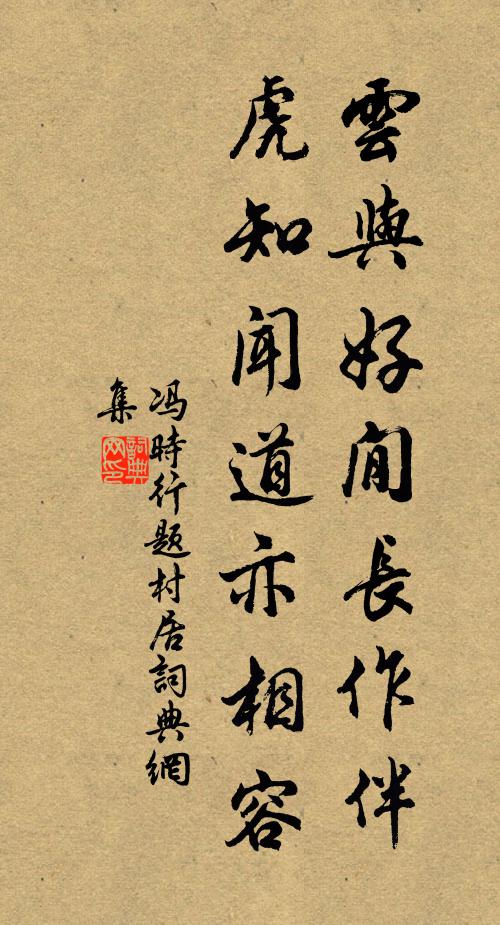 雲與好閒長作伴
虎知聞道亦相容
冯時行题村居詞典網
集
詞典
网印